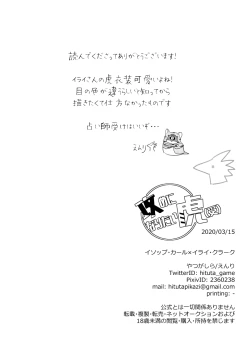 読んでくださってありがとうございます！
イライさんの虎衣装可愛いよね！
目の色が違うらしいと知ってから
描きたくて仕方なかったものです
占い師受けはいいぞ・・・
えんり
攻めに
なりたい虎
2020/03/15
イソップ・カール×イライ・クラーク
やつがしら/えんり
TwitterID: hituta_game
PixivID: 2360238
mail: hitutapikazi@gmail.com
printing: -
公式とは一切関係ありません
転載・複製・転売・ネットオークションおよび
18歳未満の閲覧・購入・所持を禁じます